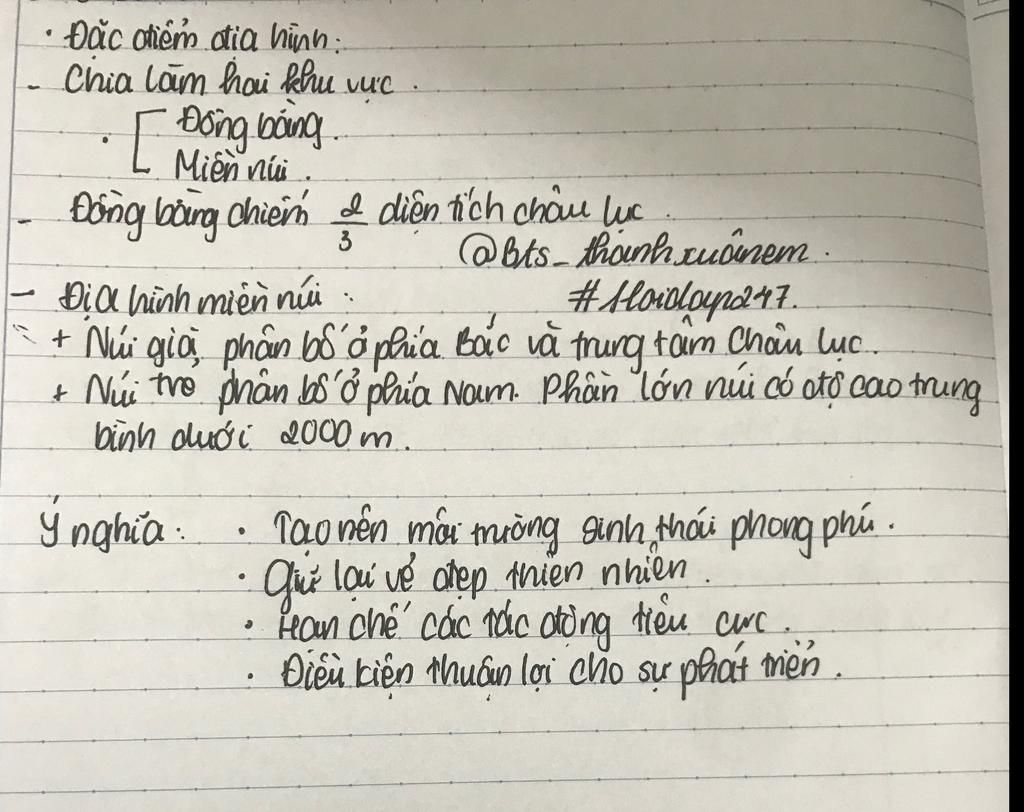 • Đặc điểm địa hình:
- Chia làm hai khu vực.
• [ Đồng bằng.
Miền núi.
- Đồng bằng chiếm 2/3 diện tích châu lục.
@Bts_thanhxuânem.
- Địa hình miền núi:
#Hoidap247.
+ Núi già phân bố ở phía Bắc và trung tâm Châu lục.
+ Núi trẻ phân bố ở phía Nam. Phần lớn núi có độ cao trung
bình dưới 2000 m.
Ý nghĩa: • Tạo nên môi trường sinh thái phong phú.
• Giữ lại vẻ đẹp thiên nhiên.
• Hạn chế các tác động tiêu cực.
• Điều kiện thuận lợi cho sự phát triển.